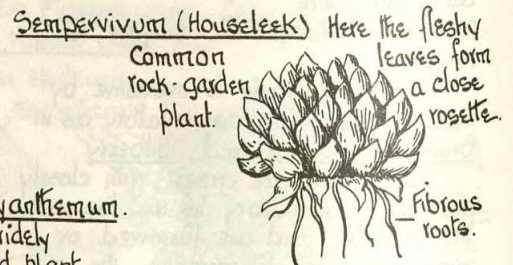 Sempervivum (Houseleek)
Here the fleshy
leaves form
a close
rosette.
Common
rock-garden
plant.
Fibrous
roots.
yanthemum.
idely
d plant